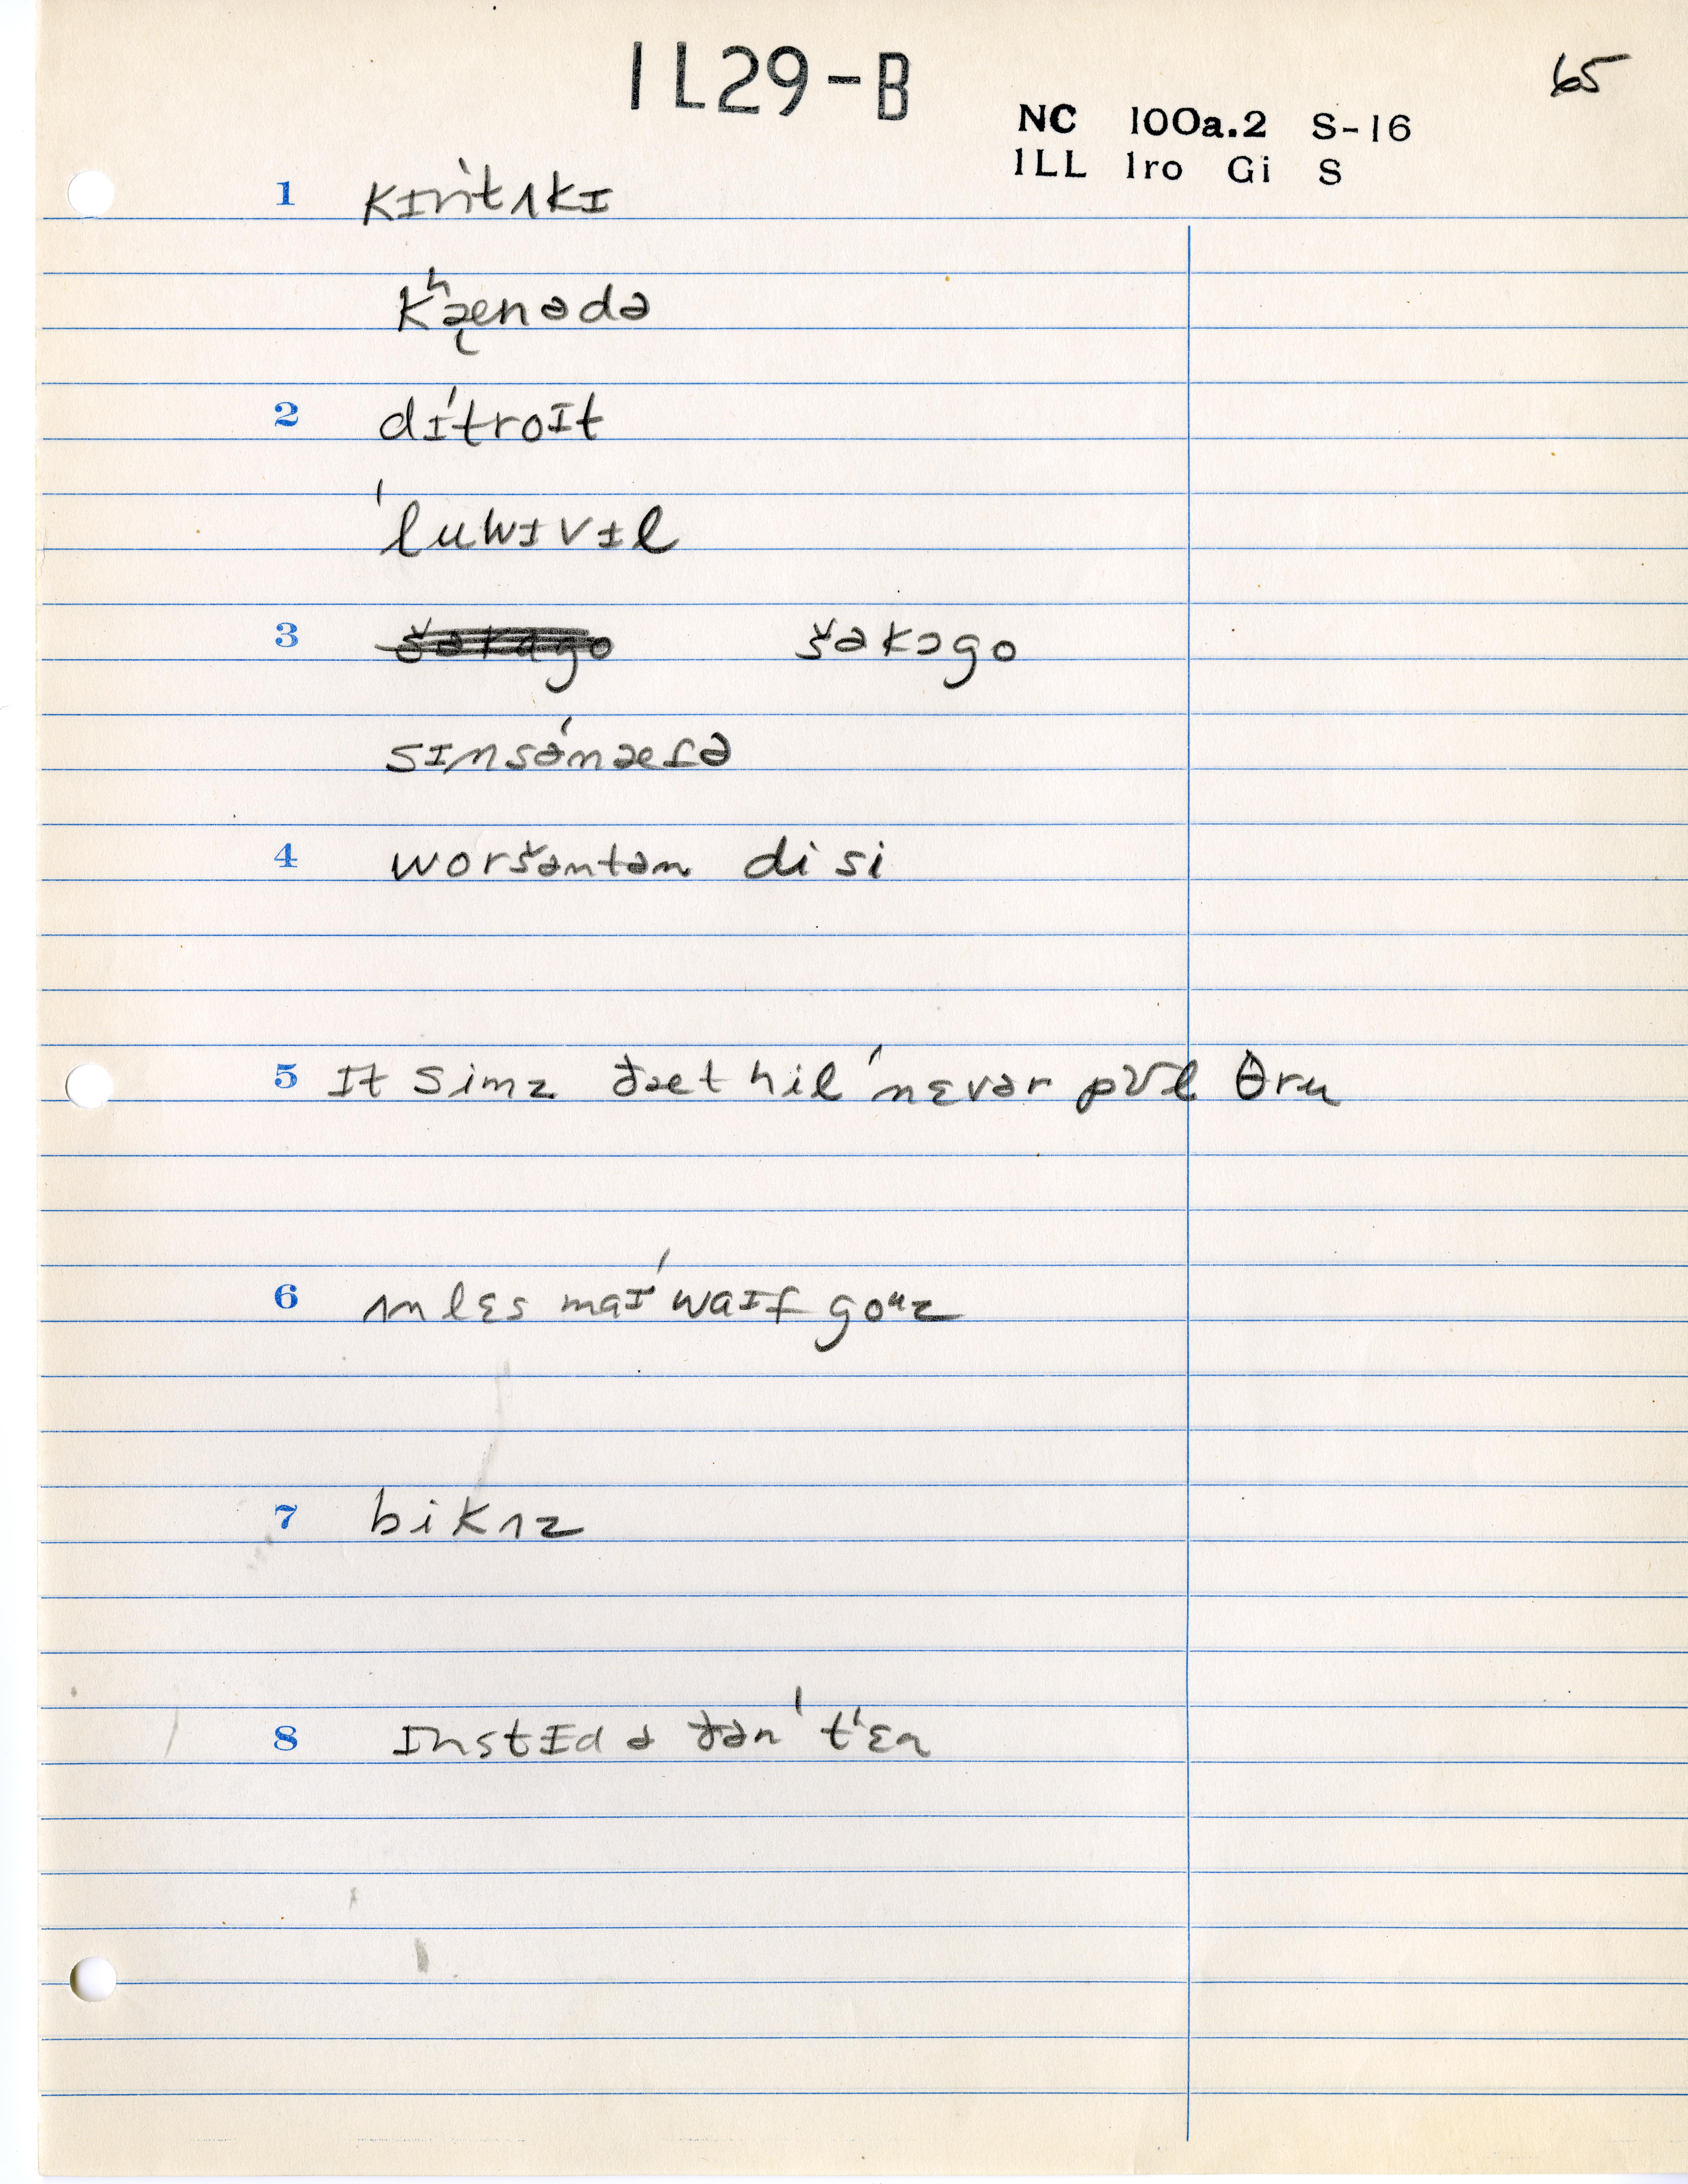 IL29-B
65
NC 100a.2 S-16
ILL Iro Gi S
1 kɪn'tʌkɪ
kʰæ̨nədə
2 dɪ'troɪt
'luwɪvɪl
3 šəkɔgo
sɪnsə'næfə
4 woršəntən di si
5 It simz ðæt hil 'nɛvər pʊl θru
6 ʌnlɛs maɪ 'waɪf goᵘz
7 bikʌz
8 ɪnstɛd ə ðən 't'ɛn